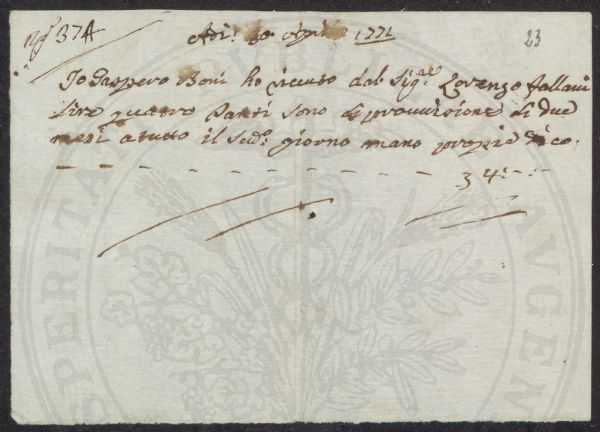 N.º 374
Adi: 30 Aprile 1771
23
Io Gaspero Boni ho riceuto dal Sig.re Lorenzo Fallani
lire quattro Tanti sono di provvisione di due
mesi a tutto il Sud.o giorno mano propria dico:
- - - - - - - - - - - - 3 4:-:-
PROSPERITATI PUBLICAE AUGEN